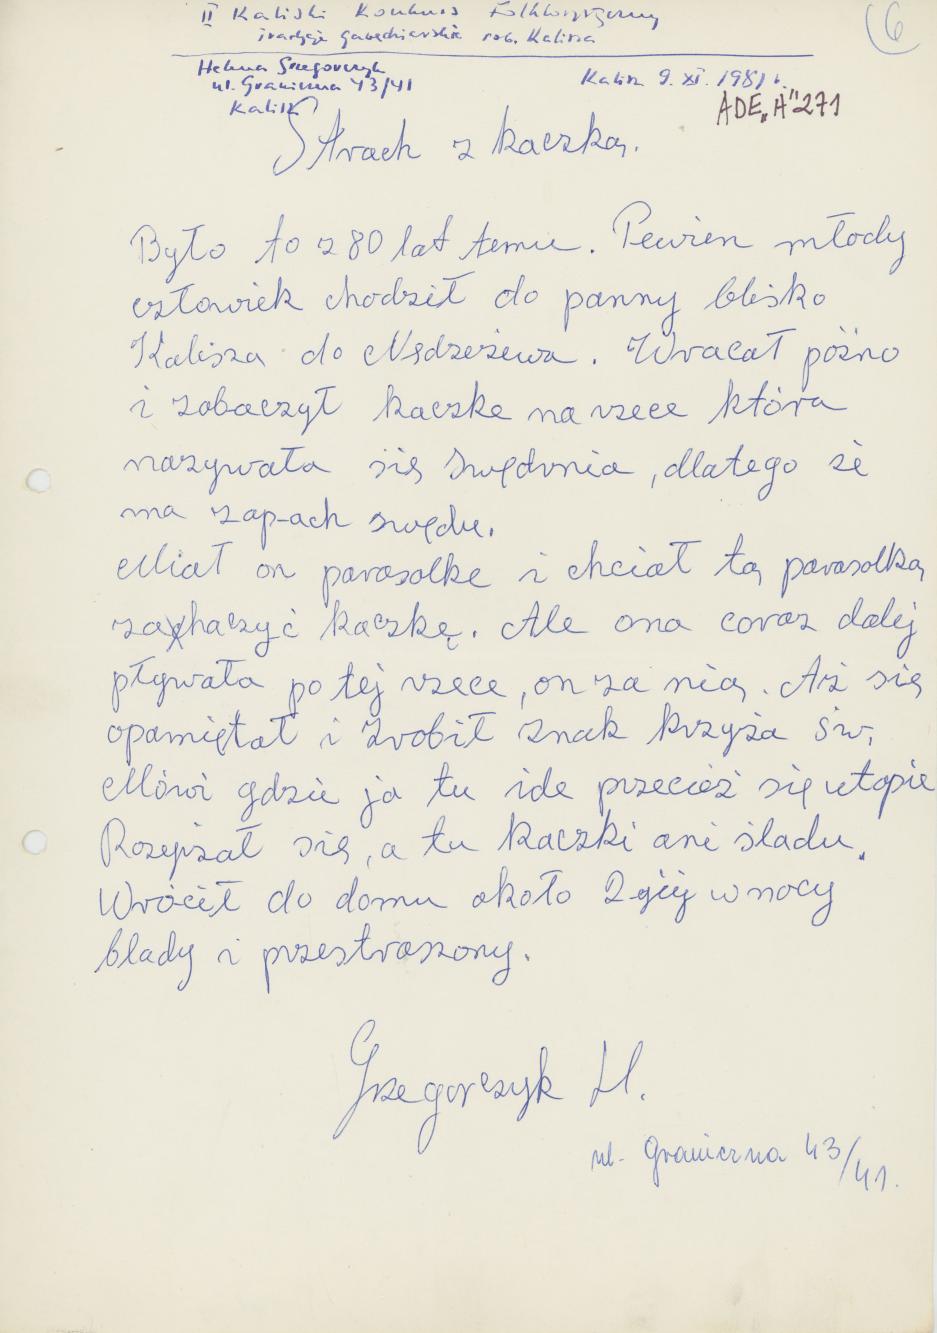 II Kaliski Konkurs Folklorystyczny
tradycje gawędziarskie rob. Kalisza
6
Helena Grzegorczyk
ul. Graniczna 43/41
Kalisz
Kalisz 9. XI. 1981 r.
ADE „H" 271
Strach z kaczką.
Było to z 80 lat temu. Pewien młody
człowiek chodził do panny blisko
Kalisza do Nędzeżewa. Wracał późno
i zobaczył kaczke na rzece która
nazywała się Swędrnia, dlatego że
ma zapach swędu.
Miał on parasolke i chciał tą parasolką
zahaczyć kaczkę. Ale ona coraz dalej
pływała po tej rzece, on za nią. Aż się
opamiętał i zrobił znak krzyża św,
Mówi gdzie ja tu ide przecież się utopie
Rozejżał się, a tu kaczki ani śladu.
Wrócił do domu około 2-giej w nocy
blady i przestraszony.
Grzegorczyk H.
ul. Graniczna 43/41.